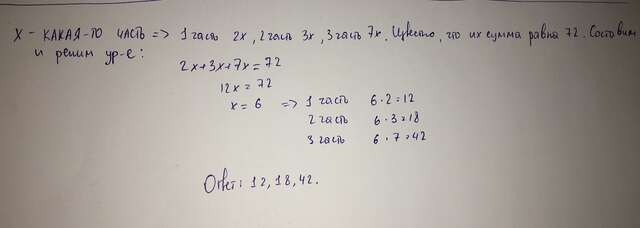 X - КАКАЯ-ТО ЧАСТЬ => 1 часть 2x, 2 часть 3x, 3 часть 7x. Известно, что их сумма равна 72. Составим
и решим ур-е:
2x+3x+7x=72
12x=72
x=6 => 1 часть 6·2=12
2 часть 6·3=18
3 часть 6·7=42
Ответ: 12, 18, 42.